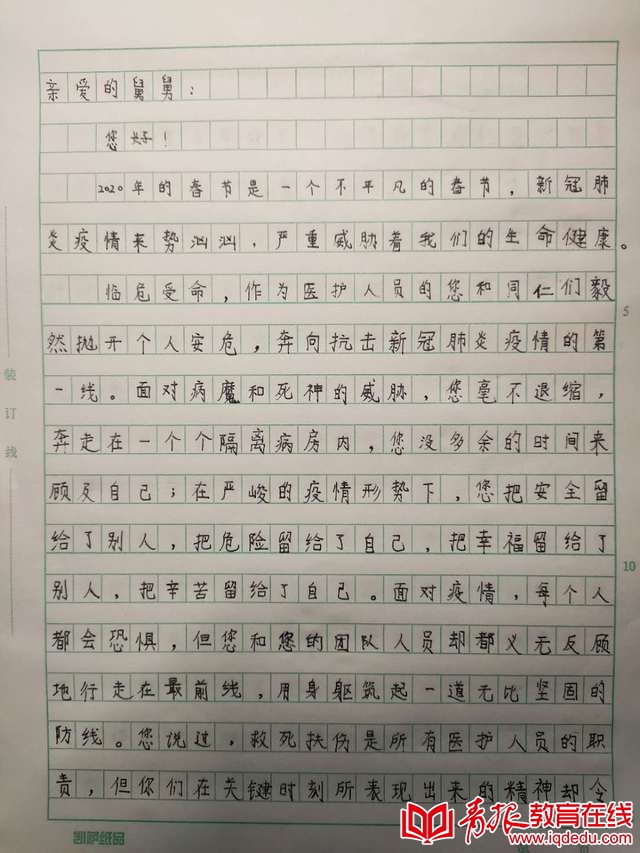 亲爱的舅舅：
您好！
2020年的春节是一个不平凡的春节，新冠肺
炎疫情来势汹汹，严重威胁着我们的生命健康。
临危受命，作为医护人员的您和同仁们毅
然抛开个人安危，奔向抗击新冠肺炎疫情的第
一线。面对病魔和死神的威胁，您毫不退缩，
奔走在一个个隔离病房内，您没多余的时间来
顾及自己；在严峻的疫情形势下，您把安全留
给了别人，把危险留给了自己，把幸福留给了
别人，把辛苦留给了自己。面对疫情，每个人
都会恐惧，但您和您的团队人员却都义无反顾
地行走在最前线，用身躯筑起一道无比坚固的
防线。您说过，救死扶伤是所有医护人员的职
责，但你们在关键时刻所表现出来的精神却令
装订线
5
10
凯萨纸品
青报教育在线
www.iqdedu.com